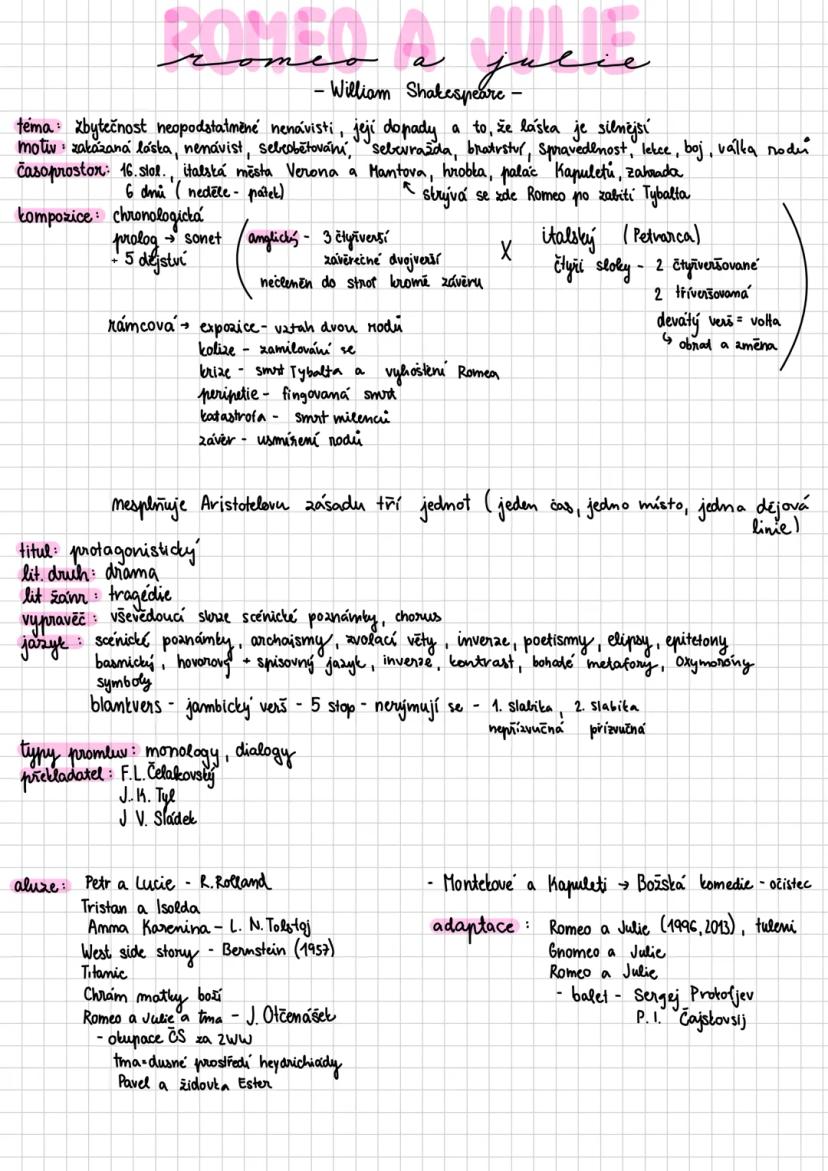 ROMEO A JULIE
romeo a julie
- William Shakespeare -
téma: zbytečnost neopodstatněné nenávisti, její dopady a to, že láska je silnější
motiv: zakázaná láska, nenávist, sebeobětování, sebevražda, bratrství, spravedlnost, lekce, boj, válka rodů
časoprostor: 16. stol., italská města Verona a Mantova, hrobka, palác Kapuletů, zahrada
6 dnů (neděle - pátek) ↖ skrývá se zde Romeo po zabití Tybalta
kompozice: chronologická
prolog → sonet (anglický - 3 čtyřverší X italský (Petrarca)
+ 5 dějství závěrečné dvojverší čtyři sloky - 2 čtyřveršované
nečleněn do strof kromě závěru 2 tříveršovaná
devátý verš = volta
↳ obrat a změna)
rámcová → expozice - vztah dvou rodů
kolize - zamilování se
krize - smrt Tybalta a vyhoštění Romea
peripetie - fingovaná smrt
katastrofa - smrt milenců
závěr - usmíření rodů
nesplňuje Aristotelovu zásadu tří jednot (jeden čas, jedno místo, jedna dějová
linie)
titul: protagonistický
lit. druh: drama
lit žánr: tragédie
vypravěč: vševědoucí skrze scénické poznámky, chorus
jazyk: scénické poznámky, archaismy, zvolací věty, inverze, poetismy, elipsy, epitetony
básnický, hovorový + spisovný jazyk, inverze, kontrast, bohaté metafory, oxymoróny
symboly
blankvers - jambický verš - 5 stop - nerýmují se - 1. slabika, 2. slabika
nepřízvučná přízvučná
typy promluv: monology, dialogy
překladatel: F.L. Čelakovský
J. K. Tyl
J V. Sládek
aluze: Petr a Lucie - R. Rolland
Tristan a Isolda
Anna Karenina - L. N. Tolstoj
West side story - Bernstein (1957)
Titanic
Chrám matky boží
Romeo a Julie a tma - J. Otčenášek
- okupace ČS za 2WW
tma = dusné prostředí heydrichiády
Pavel a židovka Ester
- Montekové a Kapuleti → Božská komedie - očistec
adaptace: Romeo a Julie (1996, 2013), tuleni
Gnomeo a Julie
Romeo a Julie
- balet - Sergej Prokofjev
P. I. Čajkovsij